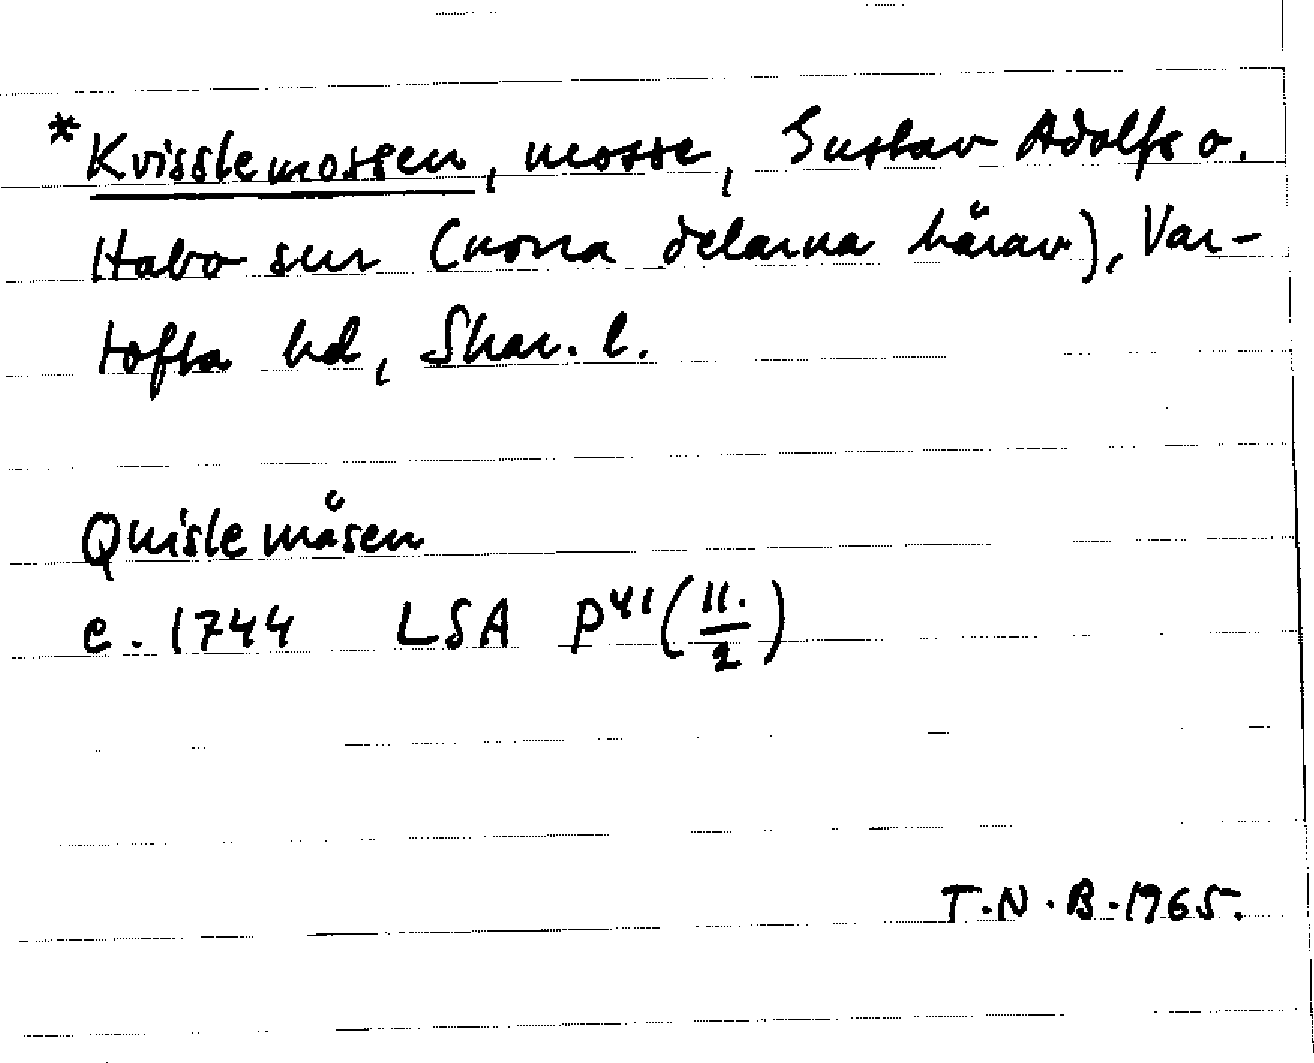 *Kvisslemossen, mosse, Gustav Adolfs o.
Habo snr (norra delarna härav), Var-
tofta hd, Skar. l.
Quisle måsen
c. 1744 LSA P41 (11./2)
T.N.B. 1965.